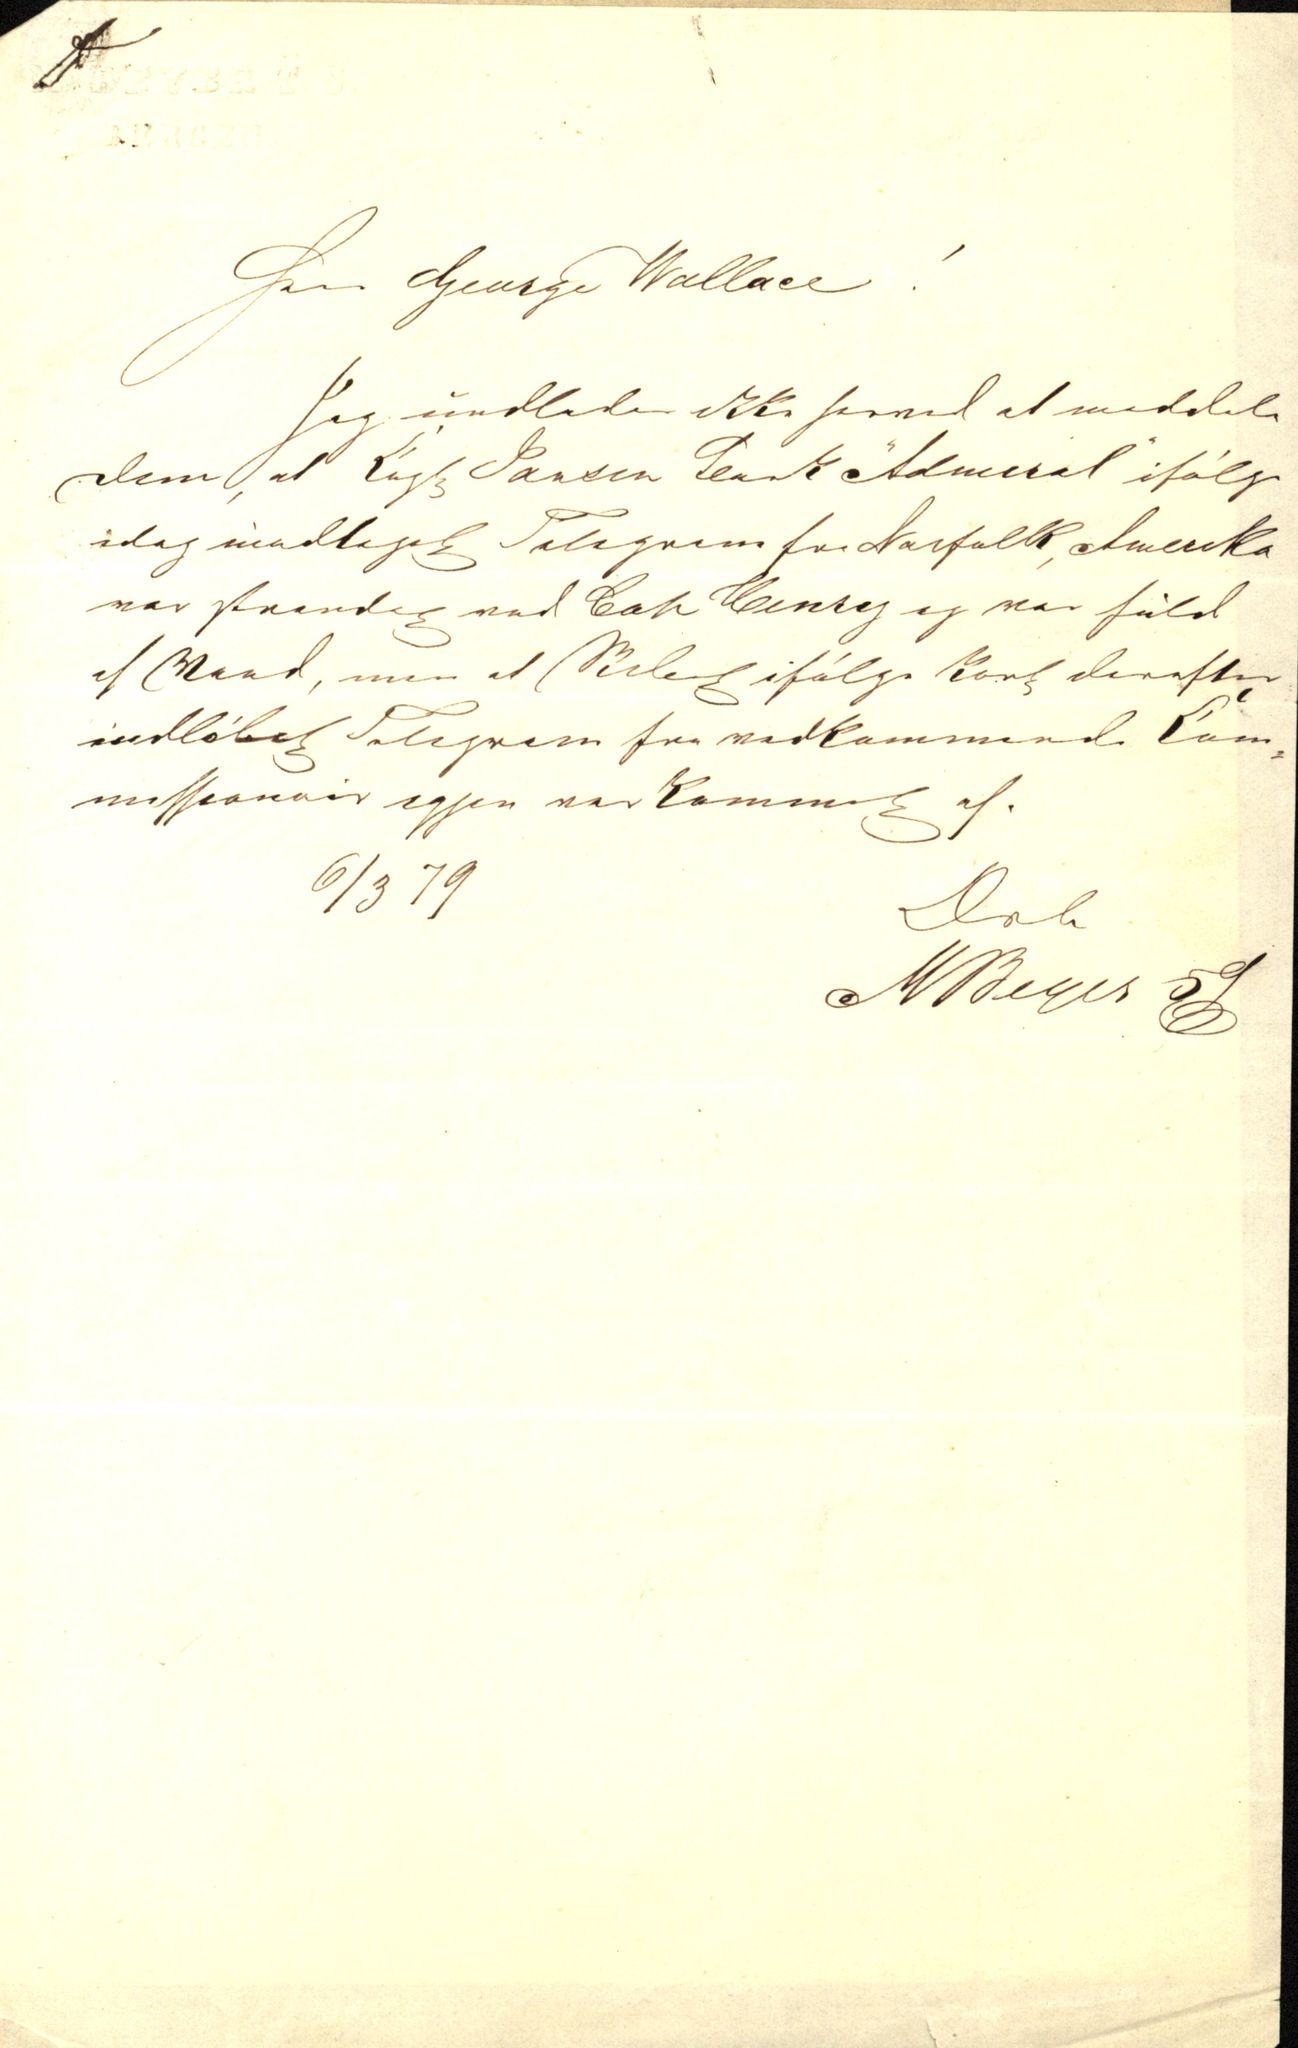 Herr George Wallace!
Jeg undlader ikke herved at meddele
Dem, at Capt Jansen Bark "Admiral" ifølge
idag modtaget Telegram fra Norfolk, Amerika
var strandet ved Cap Henry og var fuld
af Vand, men at Skibet ifølge kort derefter
indløbet Telegram fra vedkommende Com=
missionair igjen var kommet af.
6/3 79
Deres
M Beyer